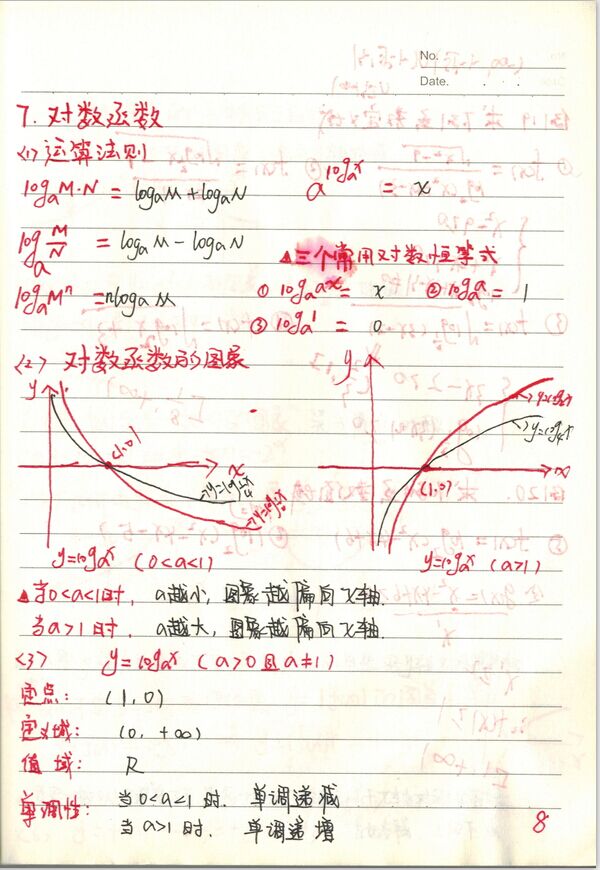 No.
Date.
7. 对数函数
<1> 运算法则
logₐM·N = logₐM + logₐN
a^logₐx = x
logₐM/N = logₐM − logₐN
▲三个常用对数恒等式
logₐMⁿ = nlogₐM
① logₐaˣ = x ② logₐa = 1
③ logₐ1 = 0
<2> 对数函数的图象
y
x
(1,0)
y=log¼x
y=logₐx (0<a<1)
y
x
(1,0)
y=log₄x
y=logₐx (a>1)
▲当0<a<1时, a越小, 图象越偏向x轴.
当a>1时, a越大, 图象越偏向x轴.
<3> y=logₐx (a>0且a≠1)
定点: (1,0)
定义域: (0, +∞)
值域: R
单调性: 当0<a<1时. 单调递减
当a>1时. 单调递增
8